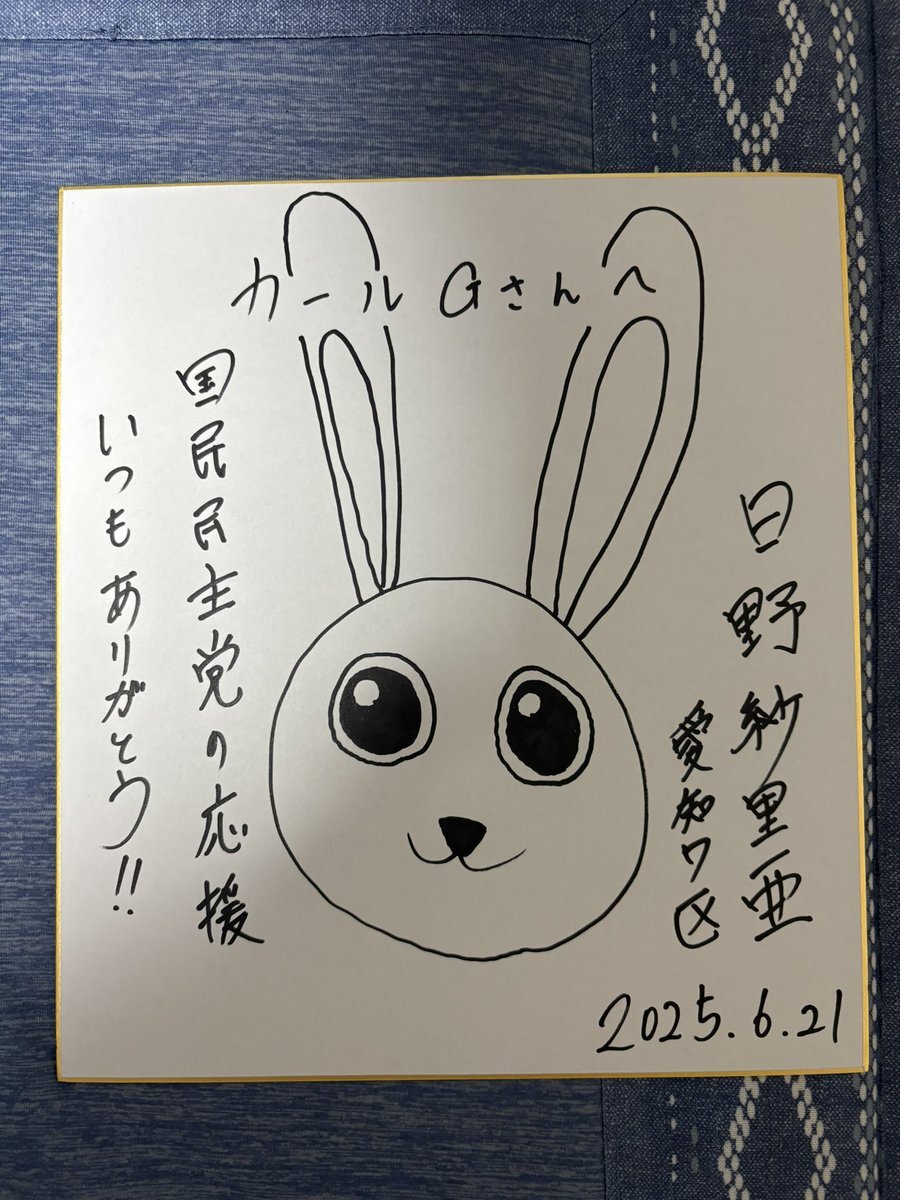 カールGさんへ
日野紗里亜
愛知7区
国民民主党の応援
いつもありがとう!!
2025.6.21